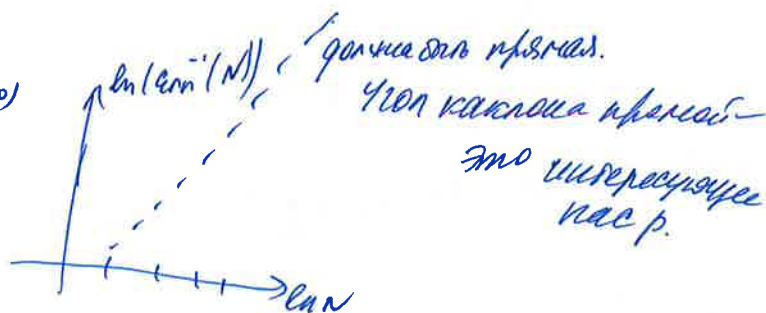 ln(err⁻¹(N)) должна быть прямая.
Угол наклона прямой –
это интересующее
нас p.
ln N